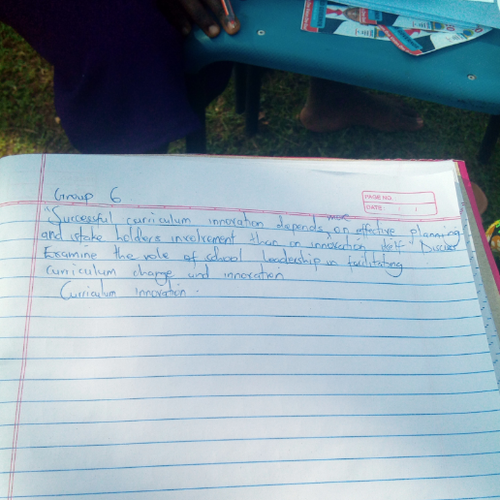 Group 6
PAGE NO.
DATE:
"Successful curriculum innovation depends more on effective planning
and stake holders involvement than on innovation itself" Discuss
Examine the role of school leadership in facilitating
curriculum change and innovation
Curriculum innovation.